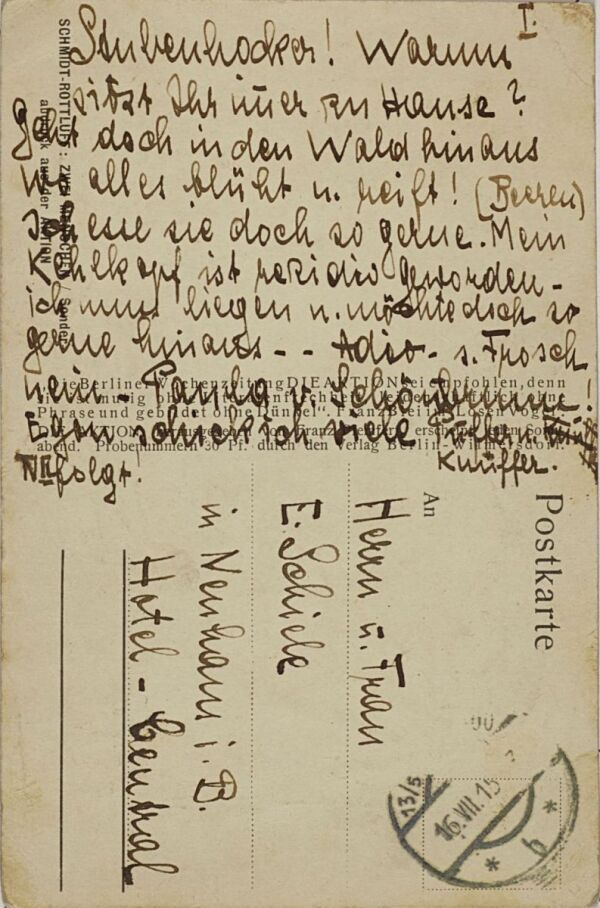 I.
Stubenhocker! Warum
sitzt Ihr im̄er zu Hause?
Geht doch in den Wald hinaus
wo alles blüht u. reift! (Beeren)
Ich esse sie doch so gerne. Mein
Kehlkopf ist rezidiv geworden -
ich muss liegen u. möchte doch so
gerne hinaus - - Adio - s. Frosch
nein - Schönberg
Egon schick ich viele
Knüffer.
No II folgt.
SCHMIDT-ROTTLUFF: Sonder
abdruck aus der AKTION
Die Berliner Wochenzeitung DIE AKTION sei empfohlen, denn
Phrase und gebildet ohne Dünkel". Franz Blei im Losen Vogel
abend. Probenummern 30 Pf. durch den Verlag Berlin-Wilmersdorf.
Postkarte
An
Herrn u. Frau
E. Schiele
in Neuhaus i. B.
Hotel - Central
13/5
16.VII.15
* b *